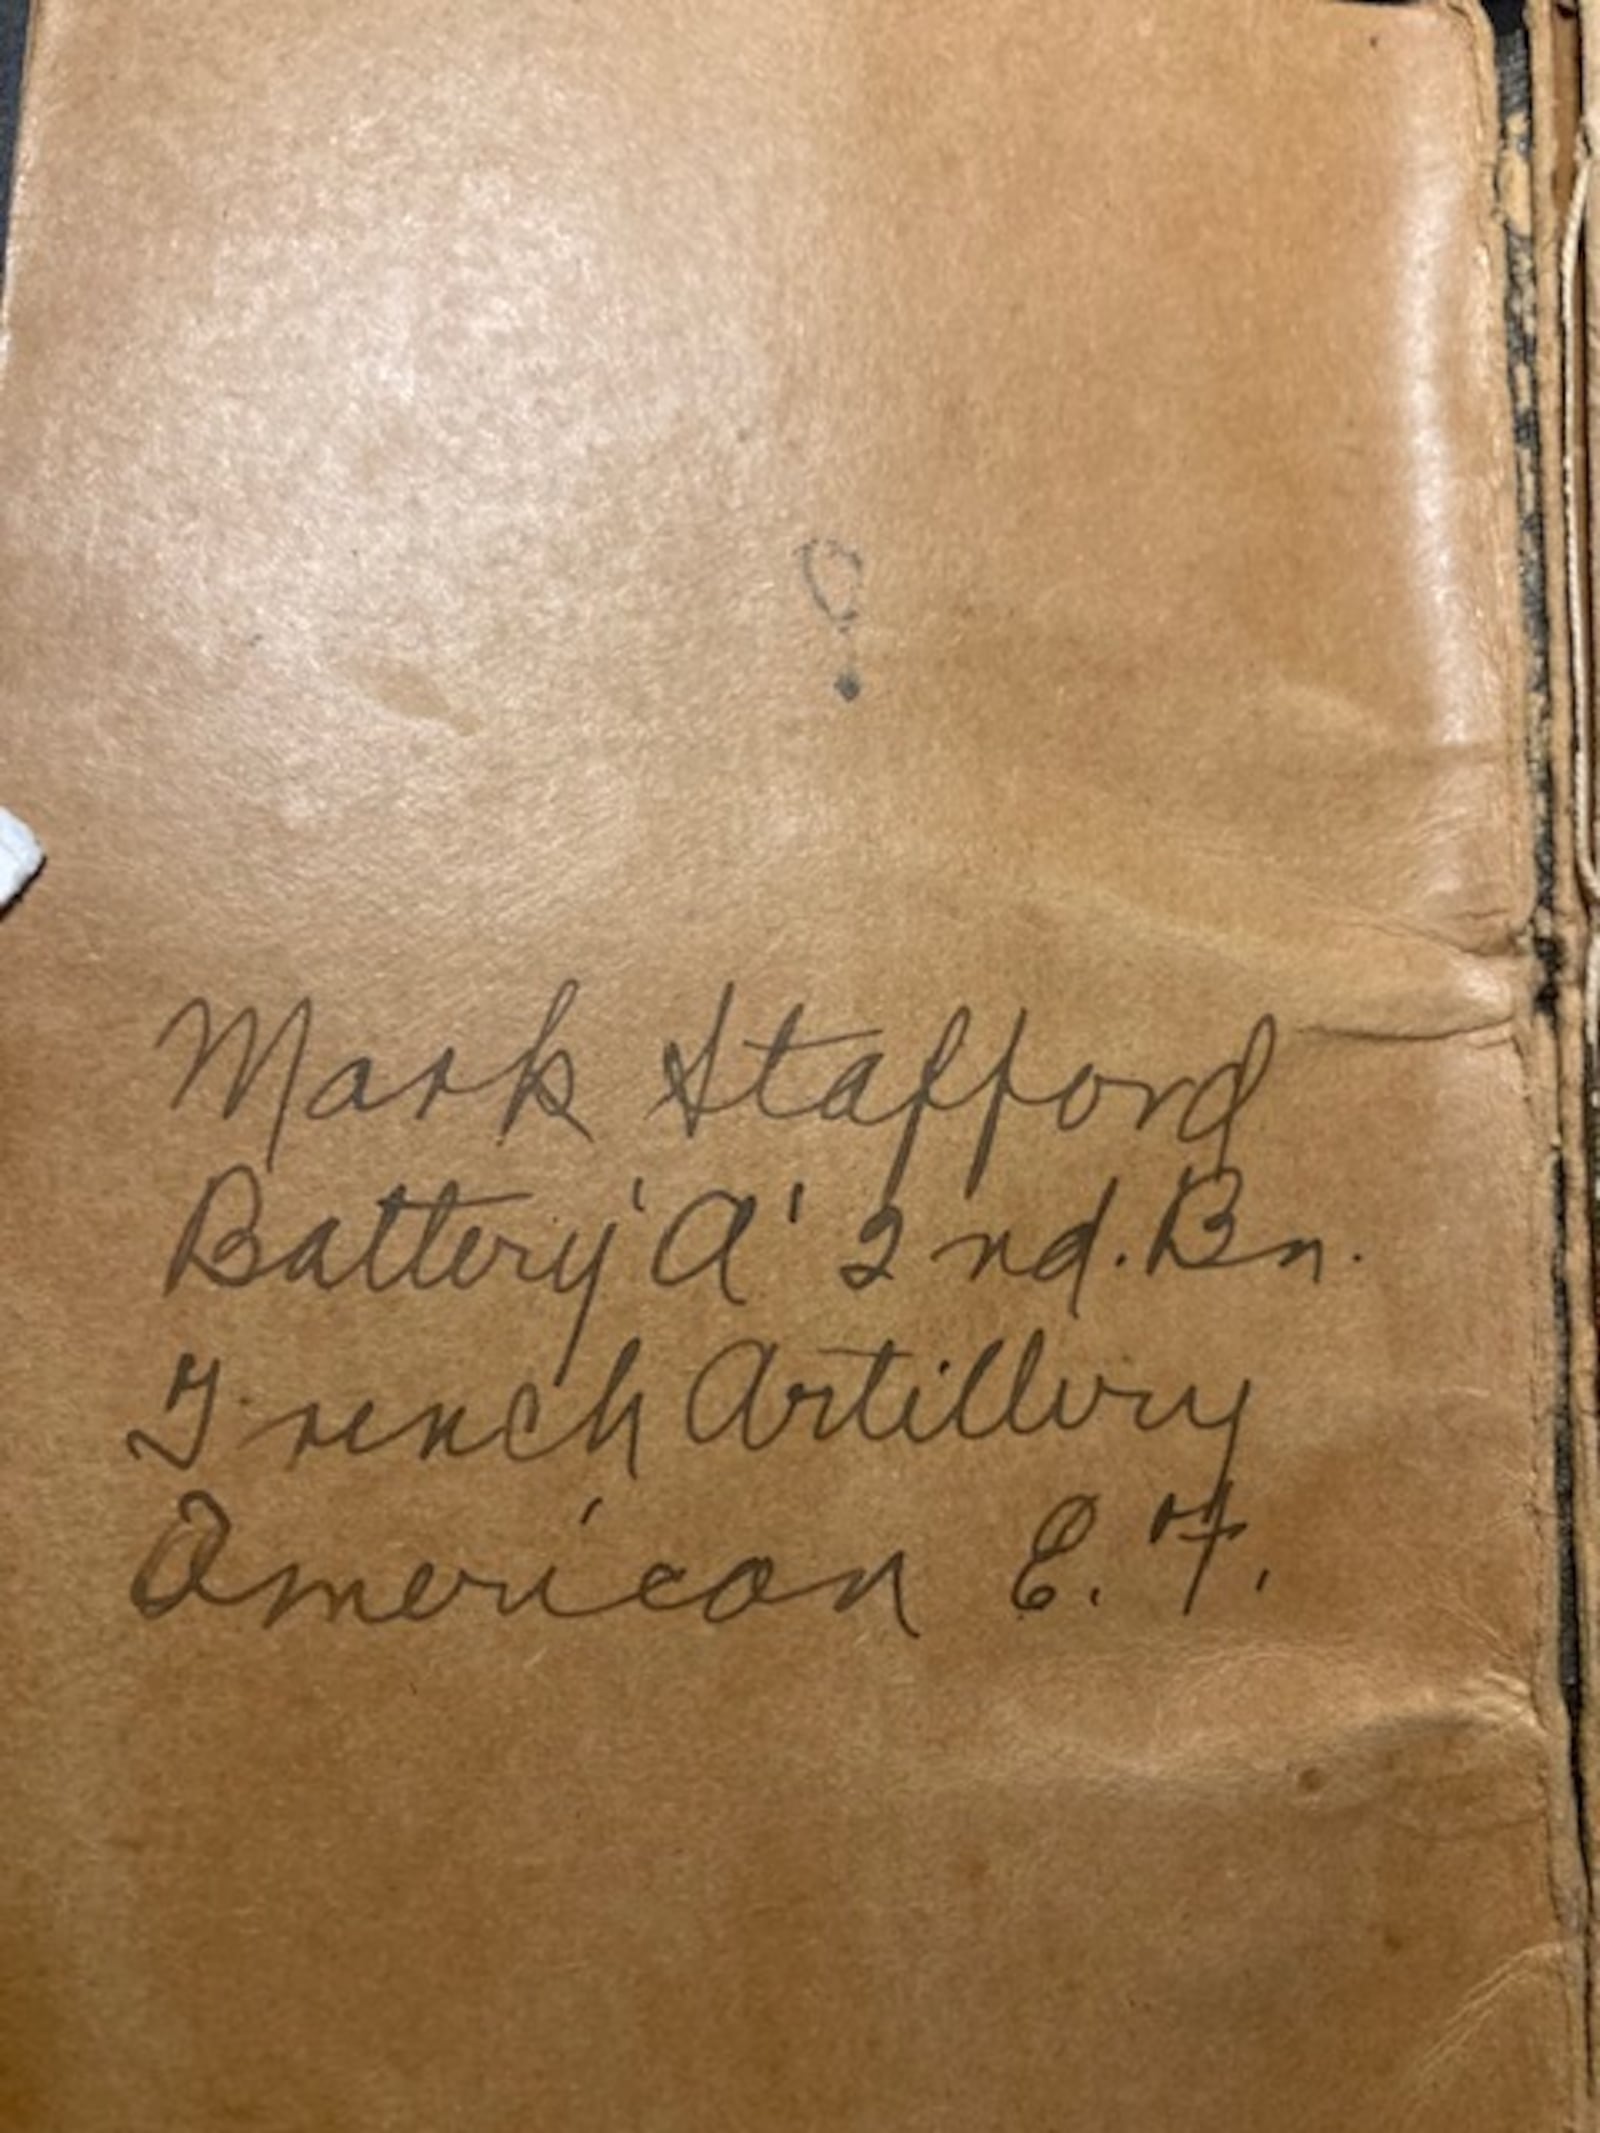 ?
Mark Stafford
Battery 'A' 2nd. Bn.
Trench Artillery
American E. F.